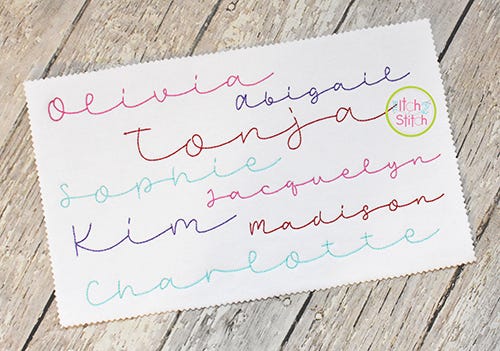 Olivia
abigail
Tonja
Itch 2
Stitch
Sophie
Jacquelyn
Kim
madison
Charlotte